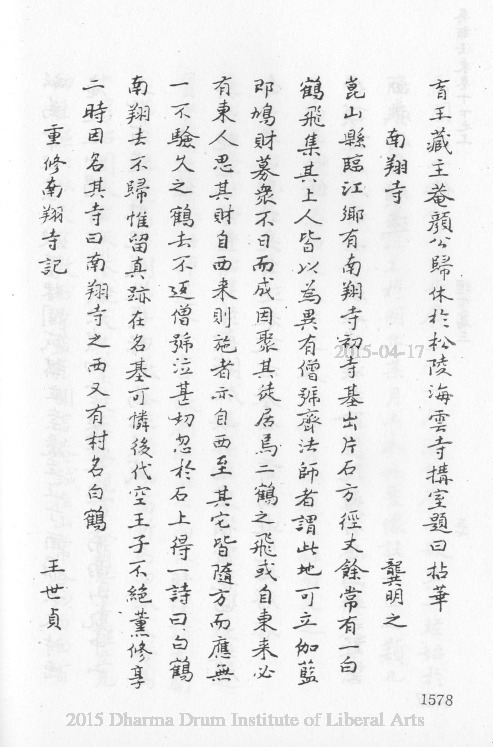 育王藏主菴顏公歸休於松陵海雲寺搆室題曰拈華
南翔寺　龔明之
崑山縣臨江鄉有南翔寺初寺基出片石方徑丈餘常有一白
鶴飛集其上人皆以為異有僧號齊法師者謂此地可立伽藍
即鳩財募衆不日而成因聚其徒居焉二鶴之飛或自東来必
有東人思其財自西来則施者亦自西至其它皆隨方而應無
一不驗久之鶴去不返僧號泣甚切忽於石上得一詩曰白鶴
南翔去不歸惟留真跡在名基可憐後代空王子不絕薰修享
二時因名其寺曰南翔寺之西又有村名白鶴
重修南翔寺記　王世貞
1578
2015-04-17
2015 Dharma Drum Institute of Liberal Arts